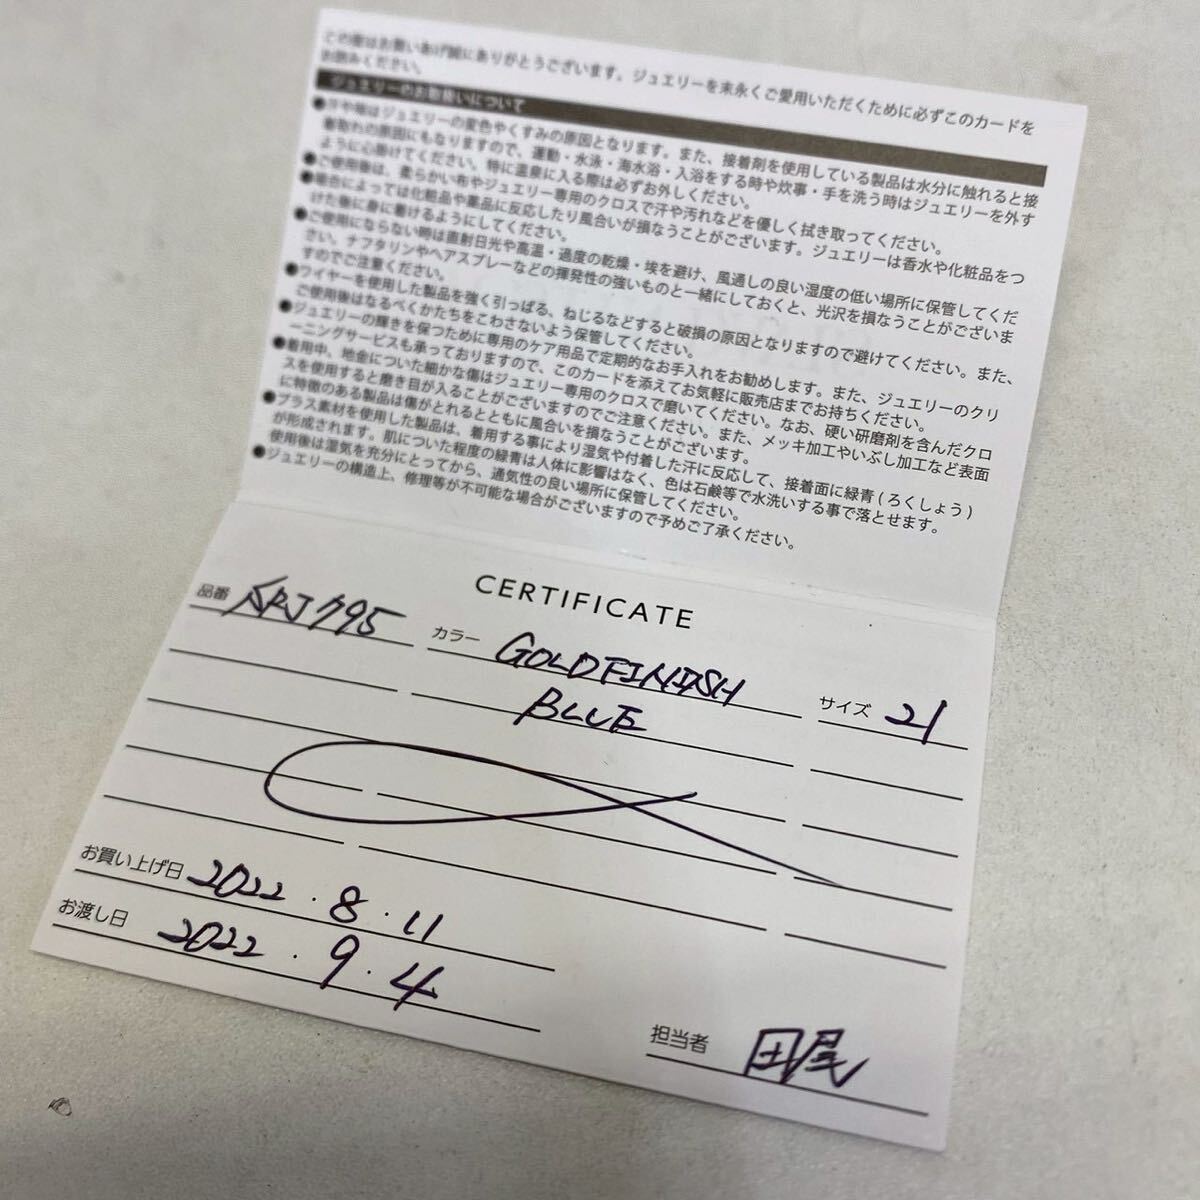 この度はお買いあげ誠にありがとうございます。ジュエリーを末永くご愛用いただくために必ずこのカードを
お読みください。
ジュエリーのお取扱いについて
●汗や熱はジュエリーの変色やくすみの原因となります。また、接着剤を使用している製品は水分に触れると接
着取れの原因にもなりますので、運動・水泳・海水浴・入浴をする時や炊事・手を洗う時はジュエリーを外す
ように心掛けてください。特に温泉に入る際は必ずお外しください。
●ご使用後は、柔らかい布やジュエリー専用のクロスで汗や汚れなどを優しく拭き取ってください。
●場合によっては化粧品や薬品に反応したり風合いが損なうことがございます。ジュエリーは香水や化粧品をつ
けた後に身に着けるようにしてください。
●ご使用にならない時は直射日光や高温・過度の乾燥・埃を避け、風通しの良い湿度の低い場所に保管してくだ
さい。ナフタリンやヘアスプレーなどの揮発性の強いものと一緒にしておくと、光沢を損なうことがございま
すのでご注意ください。
●ワイヤーを使用した製品を強く引っぱる、ねじるなどすると破損の原因となりますので避けてください。また、
ご使用後はなるべくかたちをこわさないよう保管してください。
●ジュエリーの輝きを保つために専用のケア用品で定期的なお手入れをお勧めします。また、ジュエリーのクリ
ーニングサービスも承っておりますので、このカードを添えてお気軽に販売店までお持ちください。
●着用中、地金についた細かな傷はジュエリー専用のクロスで磨いてください。なお、硬い研磨剤を含んだクロ
スを使用すると磨き目が入ることがございますのでご注意ください。また、メッキ加工やいぶし加工など表面
に特徴のある製品は傷がとれるとともに風合いを損なうことがございます。
●ブラス素材を使用した製品は、着用する事により湿気や付着した汗に反応して、接着面に緑青(ろくしょう)
が形成されます。肌についた程度の緑青は人体に影響はなく、色は石鹸等で水洗いする事で落とせます。
使用後は湿気を充分にとってから、通気性の良い場所に保管してください。
●ジュエリーの構造上、修理等が不可能な場合がございますので予めご了承ください。
CERTIFICATE
品番 カラー GOLD FINISH サイズ 21
BLUE
お買い上げ日 2022.8.11
お渡し日 2022.9.4
担当者 田尾